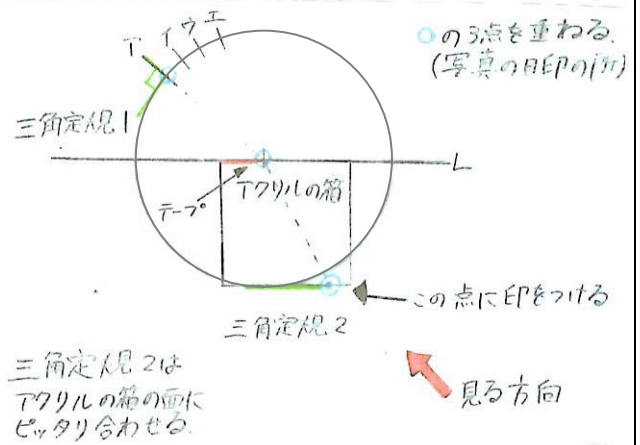 ア イ ウ エ
○の3点を重ねる.
(写真の目印の所)
三角定規1
L
テープ
アクリルの箱
この点に印をつける
三角定規2
三角定規2は
アクリルの箱の面に
ピッタリ合わせる.
見る方向